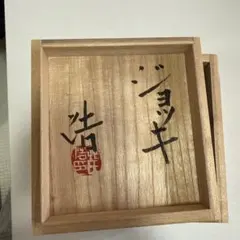 ジョッキ
浩